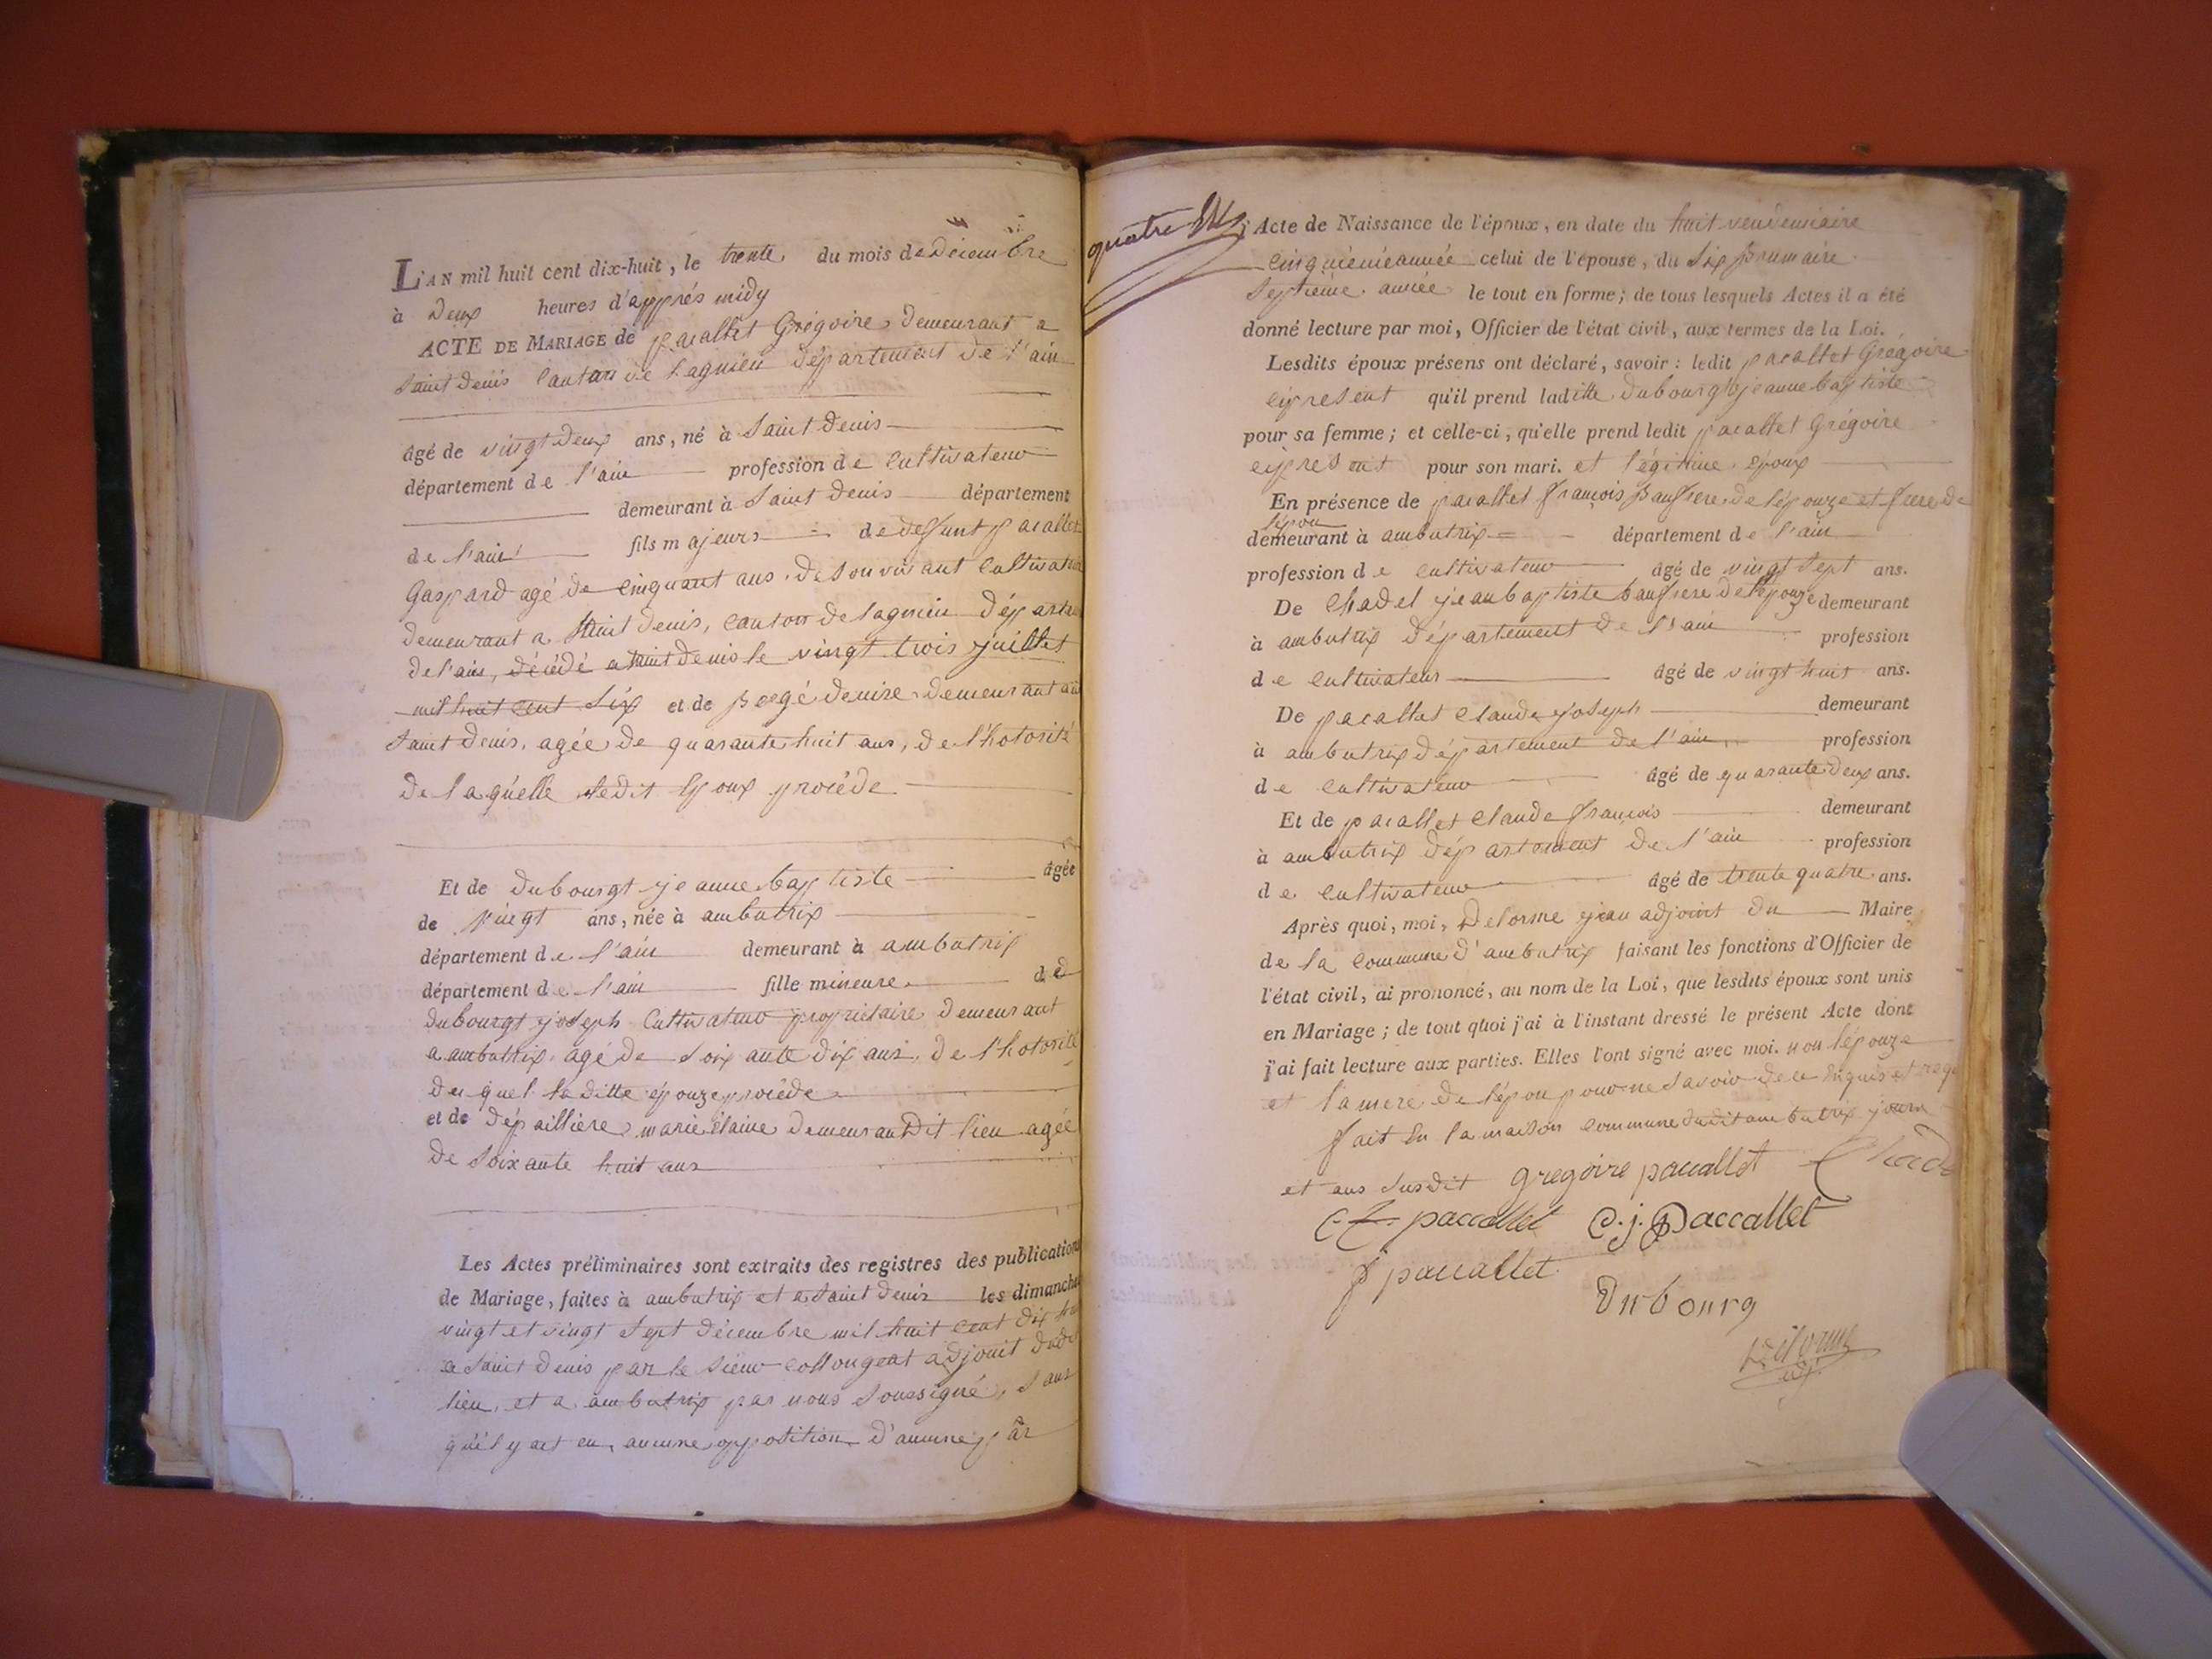 L'AN mil huit cent dix-huit, le trente du mois de Décembre
à Deux heures d'apprés midy
ACTE DE MARIAGE de pacallet Grégoire Demeurant a
Saint Denis Canton de Lagnieu Département de l'ain
âgé de vingt Deux ans, né à Saint Denis
département de l'ain profession de Cultivateur
demeurant à Saint Denis département
de l'ain fils majeurs de deffunt pacallet
Gaspard agé de Cinquant ans, De Son vivant Cultivateur
Demeurant a Saint Denis, Canton de lagnieu Départ
de l'ain, décédé a Saint Denis le vingt trois juillet
mil huit cent Six et de Denise Demeurant au
Saint Denis, agée de quarante huit ans, De l'hotorité
De laquelle ledit Epoux procède
Et de Dubourgt jeanne baptiste âgée
de vingt ans, née à ambutrix
département de l'ain demeurant à ambutrix
département de l'ain fille mineure de
Dubourgt joseph Cultivateur propriétaire Demeurant
a ambutrix, agé de Soixante Dix ans, De l'hotorité
Du quel la Ditte épouze procède
et de Marie Demeurant Dit lieu agée
De Soixante huit ans
Les Actes préliminaires sont extraits des registres des publications
de Mariage, faites à ambutrix et a Saint Denis les dimanche
vingt et vingt Sept Décembre mil huit Cent Dix huit
a Saint Denis par le Sieur adjoint Dudit
lieu, et a ambutrix par nous Soussigné, Sans
qu'il y ait eu, aucune oppotition D'aucune par
quatre
Acte de Naissance de l'époux, en date du huit vendemiaire
Cinquième année celui de l'épouse, du Six brumaire
Septième année le tout en forme; de tous lesquels Actes il a été
donné lecture par moi, Officier de l'état civil, aux termes de la Loi.
Lesdits époux présens ont déclaré, savoir: ledit pacallet Grégoire
Cipresent qu'il prend laditte Dubourgt jeanne baptiste
pour sa femme; et celle-ci, qu'elle prend ledit pacallet Grégoire
cipresent pour son mari. et légitime époux
En présence de pacallet françois baufrere de lépouze et frere de
lépou
demeurant à ambutrix département de l'ain
profession de cultivateur âgé de vingt Sept ans.
De Chadel jean baptiste baufrere De lépouze demeurant
à ambutrix Département de l'ain profession
de Cultivateur âgé de vingt huit ans.
De pacallet Claude joseph demeurant
à ambutrix Département de l'ain profession
de Cultivateur âgé de quarante Deux ans.
Et de pacallet Claude françois demeurant
à ambutrix Département De l'ain profession
de Cultivateur âgé de trente quatre ans.
Après quoi, moi, Delorme jean adjoint Du Maire
de la Commune d'ambutrix faisant les fonctions d'Officier de
l'état civil, ai prononcé, au nom de la Loi, que lesdits époux sont unis
en Mariage; de tout quoi j'ai à l'instant dressé le présent Acte dont
j'ai fait lecture aux parties. Elles l'ont signé avec moi. non lépouze
et la mere De lépou pour ne Savoir De ce enquis et
fait En la maison Commune Dudit ambutrix jour
et ans Susdit gregoire pacallet
paccallet C. j. Paccallet
f paccallet
Dubourg
Delorme
adj.